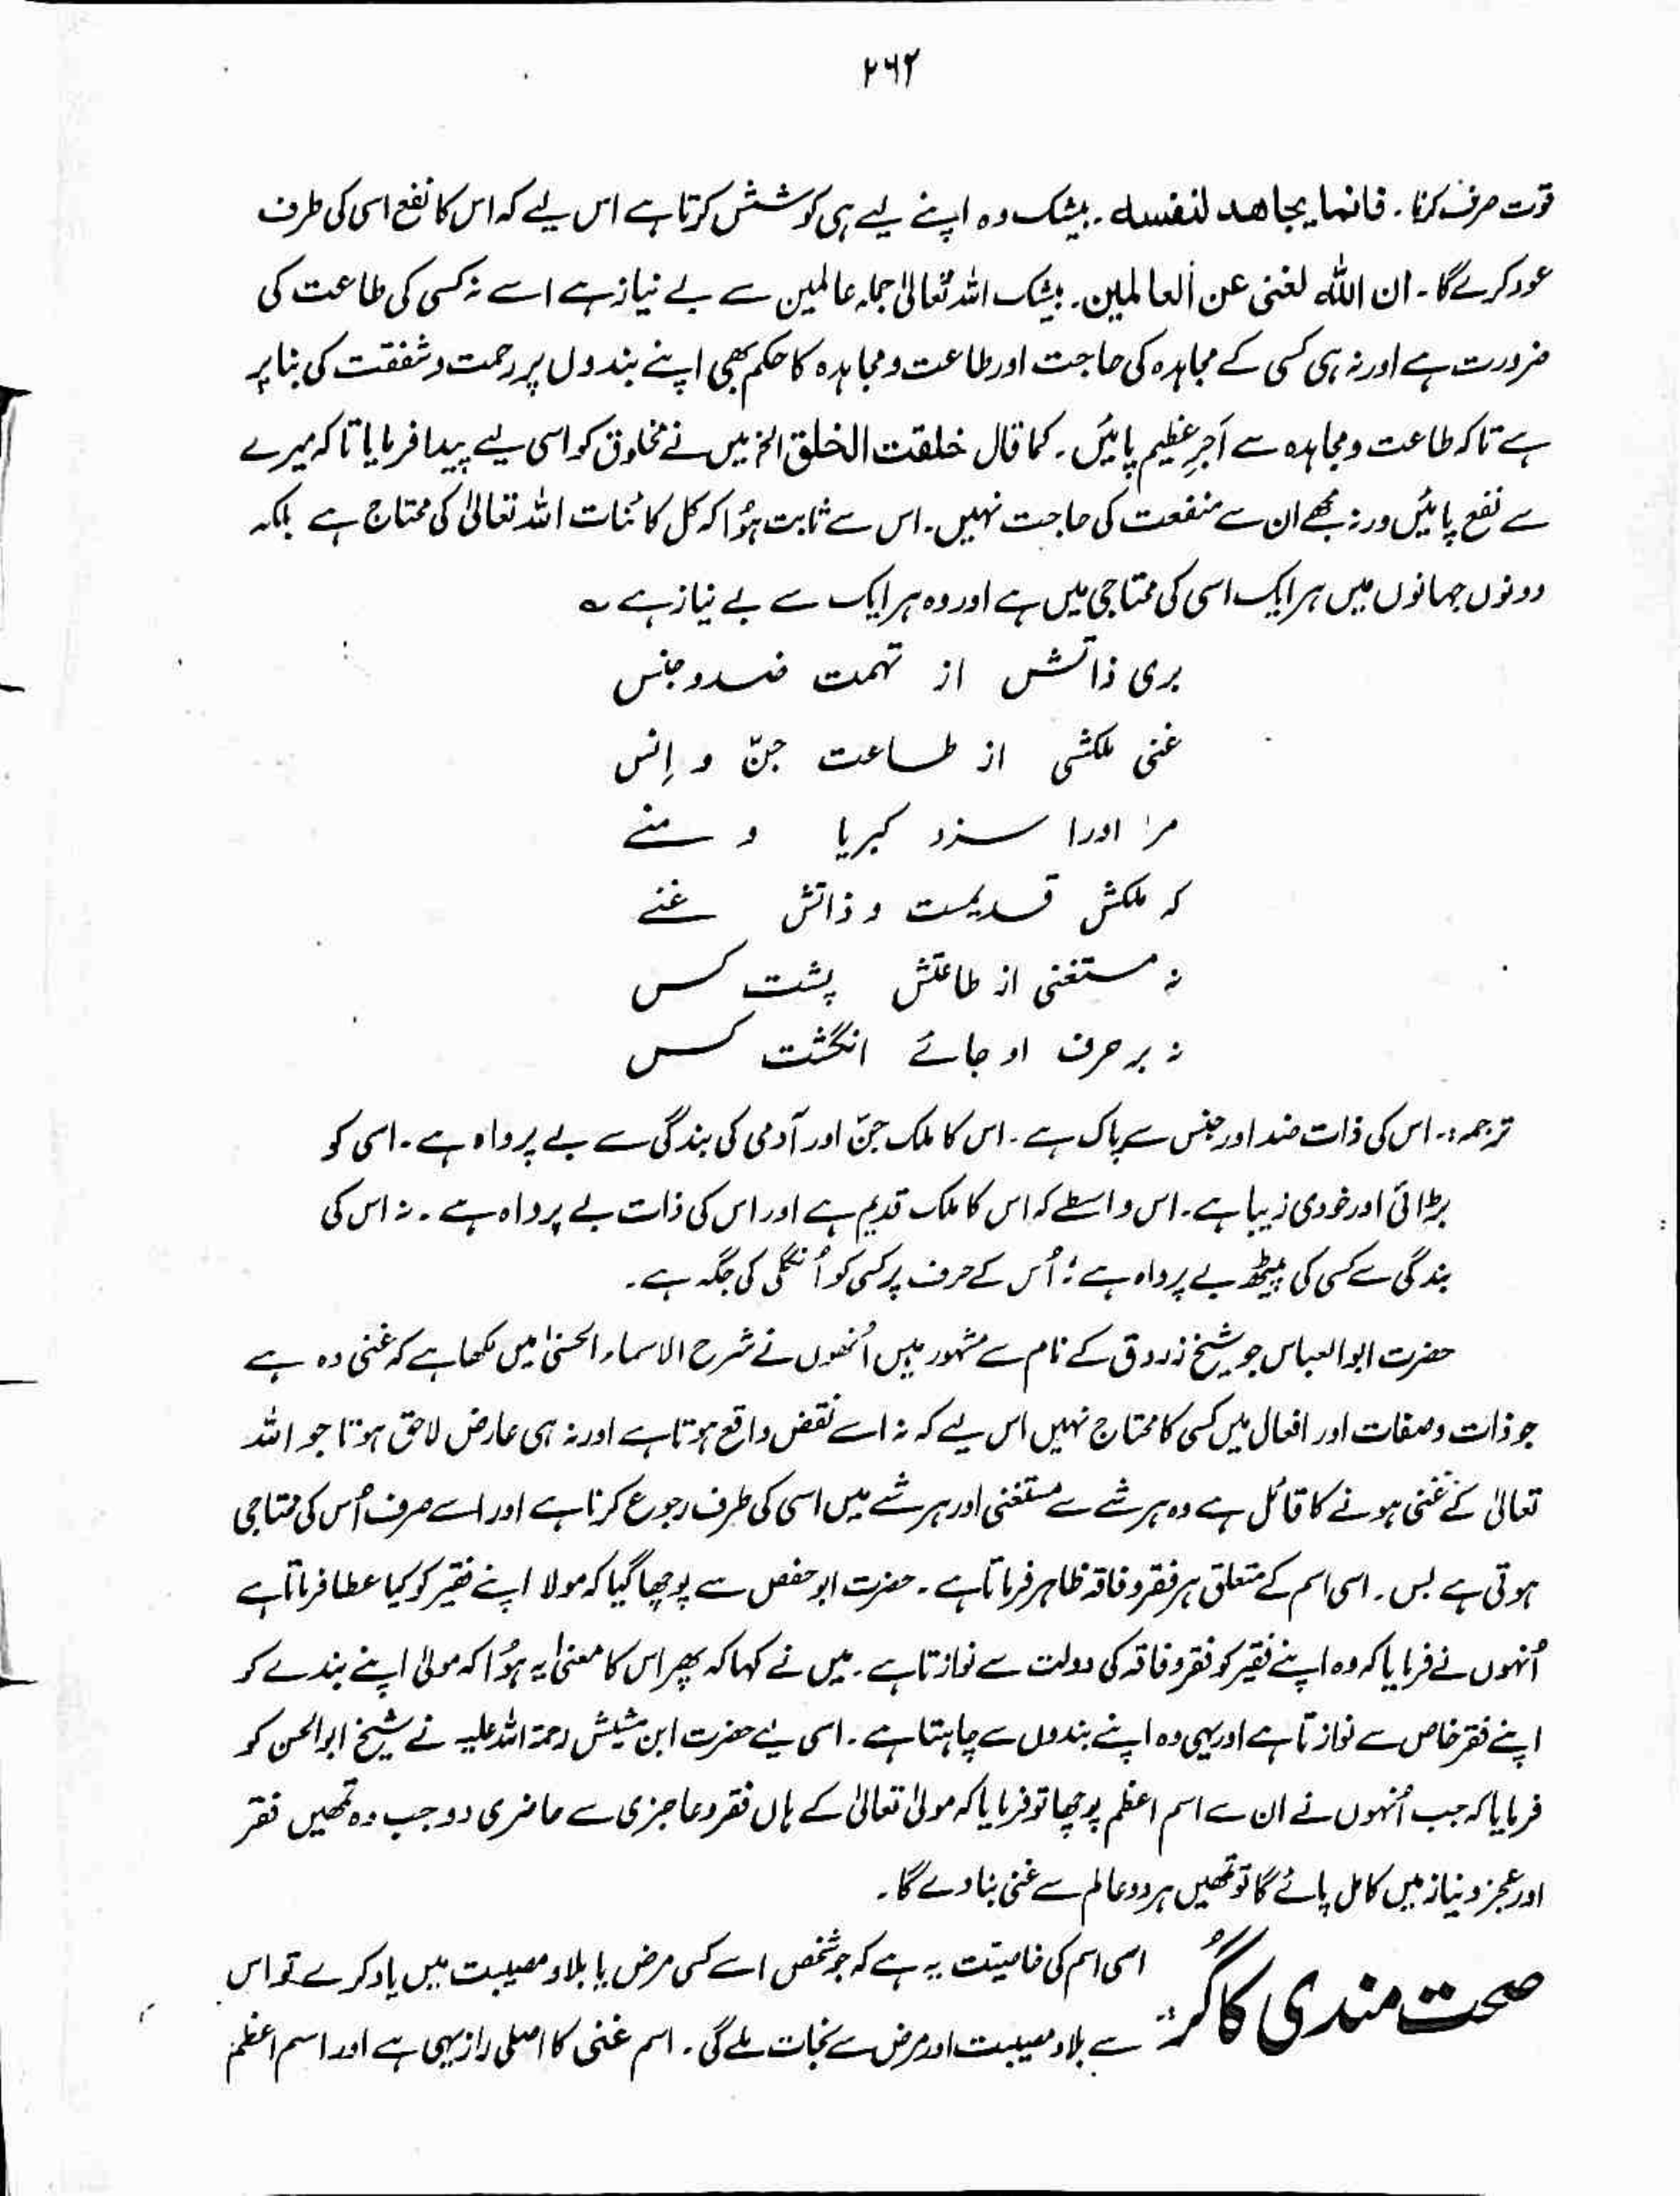 ۲۶۲
قوت صرف کرنا۔ فانما یجاھد لنفسہ۔ بیشک وہ اپنے لیے ہی کوشش کرتا ہے اس لیے کہ اس کا نفع اسی کی طرف
عود کرے گا۔ ان اللّٰہ لغنی عن العالمین۔ بیشک اللہ تعالیٰ جملہ عالمین سے بے نیاز ہے اسے نہ کسی کی طاعت کی
ضرورت ہے اور نہ ہی کسی کے مجاہدہ کی حاجت اور طاعت و مجاہدہ کا حکم بھی اپنے بندوں پر رحمت و شفقت کی بنا پر
ہے تاکہ طاعت و مجاہدہ سے اَجرِ عظیم پائیں۔ کما قال خلقت الخلق الخ میں نے مخلوق کو اسی لیے پیدا فرمایا تاکہ میرے
سے نفع پائیں ورنہ مجھے ان سے منفعت کی حاجت نہیں۔ اس سے ثابت ہُوا کہ کل کائنات اللہ تعالیٰ کی محتاج ہے بلکہ
دونوں جہانوں میں ہر ایک اسی کی محتاجی میں ہے اور وہ ہر ایک سے بے نیاز ہے ؎
بری ذاتش از تہمت ضد و جنس
غنی ملکش از طاعت جنّ و اِنس
مر اورا سزد کبریا و منے
کہ ملکش قدیمست و ذاتش غنے
نہ مستغنی از طاعتش پشت کس
نہ بر حرف او جائے انگشت کس
ترجمہ:۔ اس کی ذات ضد اور جنس سے پاک ہے۔ اس کا ملک جنّ اور آدمی کی بندگی سے بے پرواہ ہے۔ اسی کو
بڑائی اور خودی زیبا ہے۔ اس واسطے کہ اس کا ملک قدیم ہے اور اس کی ذات بے پرواہ ہے۔ نہ اس کی
بندگی سے کسی کی پیٹھ بے پرواہ ہے؛ اُس کے حرف پر کسی کو اُنگلی کی جگہ ہے۔
حضرت ابو العباس جو شیخ زروق کے نام سے مشہور ہیں اُنھوں نے شرح الاسماء الحسنیٰ میں لکھا ہے کہ غنی وہ ہے
جو ذات و صفات اور افعال میں کسی کا محتاج نہیں اس لیے کہ نہ اسے نقض واقع ہوتا ہے اور نہ ہی عارض لاحق ہوتا جو اللہ
تعالیٰ کے غنی ہونے کا قائل ہے وہ ہر شے سے مستغنی اور ہر شے میں اسی کی طرف رجوع کرتا ہے اور اسے صرف اُس کی محتاجی
ہوتی ہے بس۔ اسی اسم کے متعلق ہر فقر و فاقہ ظاہر فرماتا ہے۔ حضرت ابو حفص سے پوچھا گیا کہ مولا اپنے فقیر کو کیا عطا فرماتا ہے
اُنہوں نے فرمایا کہ وہ اپنے فقیر کو فقر و فاقہ کی دولت سے نوازتا ہے۔ میں نے کہا کہ پھر اس کا معنیٰ یہ ہُوا کہ مولیٰ اپنے بندے کو
اپنے فقر خاص سے نوازتا ہے اور یہی وہ اپنے بندوں سے چاہتا ہے۔ اسی لیے حضرت ابن مشیش رحمۃ اللہ علیہ نے شیخ ابو الحسن کو
فرمایا کہ جب اُنہوں نے ان سے اسم اعظم پوچھا تو فرمایا کہ مولیٰ تعالیٰ کے ہاں فقر و عاجزی سے حاضری دو جب وہ تمھیں فقر
اور عجز و نیاز میں کامل پائے گا تو تمھیں ہر دو عالم سے غنی بنا دے گا۔
صحت مندی کا گُر: اسی اسم کی خاصیت یہ ہے کہ جو شخص اسے کسی مرض یا بلاء و مصیبت میں یاد کرے تو اس
سے بلاء و مصیبت اور مرض سے نجات ملے گی۔ اسم غنی کا اصلی راز یہی ہے اور اسم اعظم